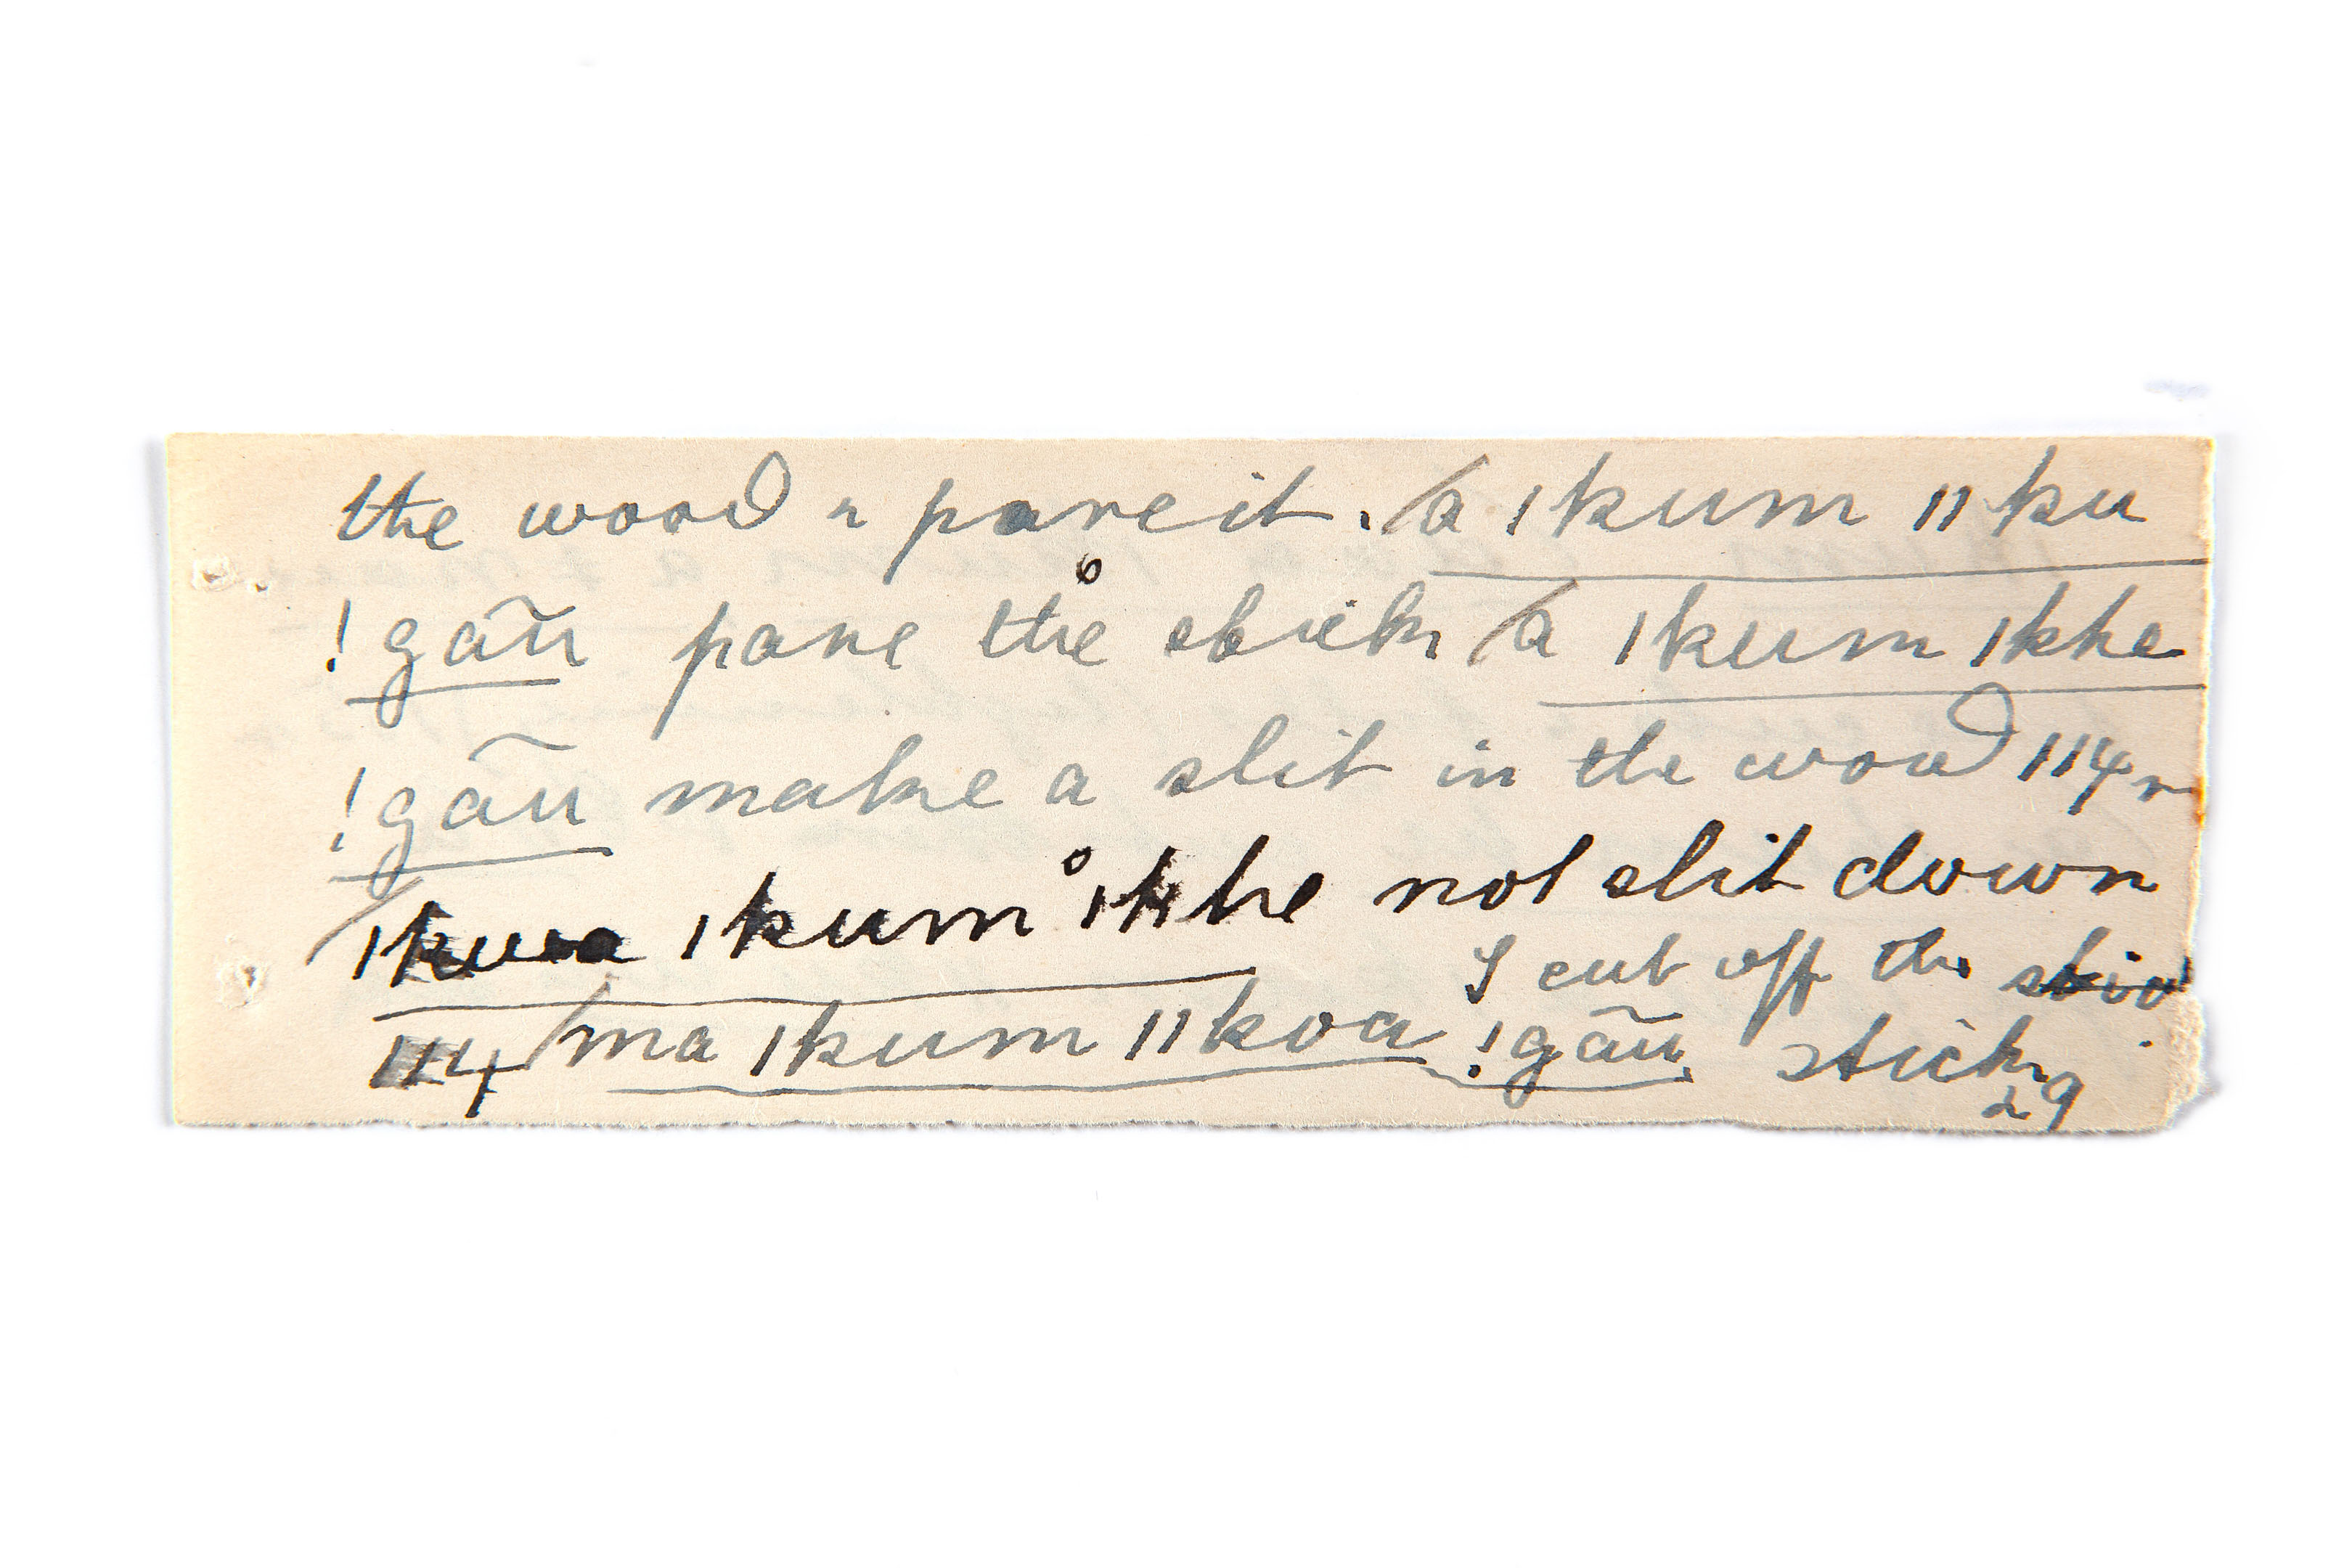 the wood & pare it. /a ǀkum ǁku
!gãũ pare the stick /a ǀkum ǀkhe
!gãũ make a slit in the wood 114 r
ǀkwa ǀkum ǀkhe not slit down
I cut off the
114 /ma ǀkum ǁkoa !gãũ. stick
29